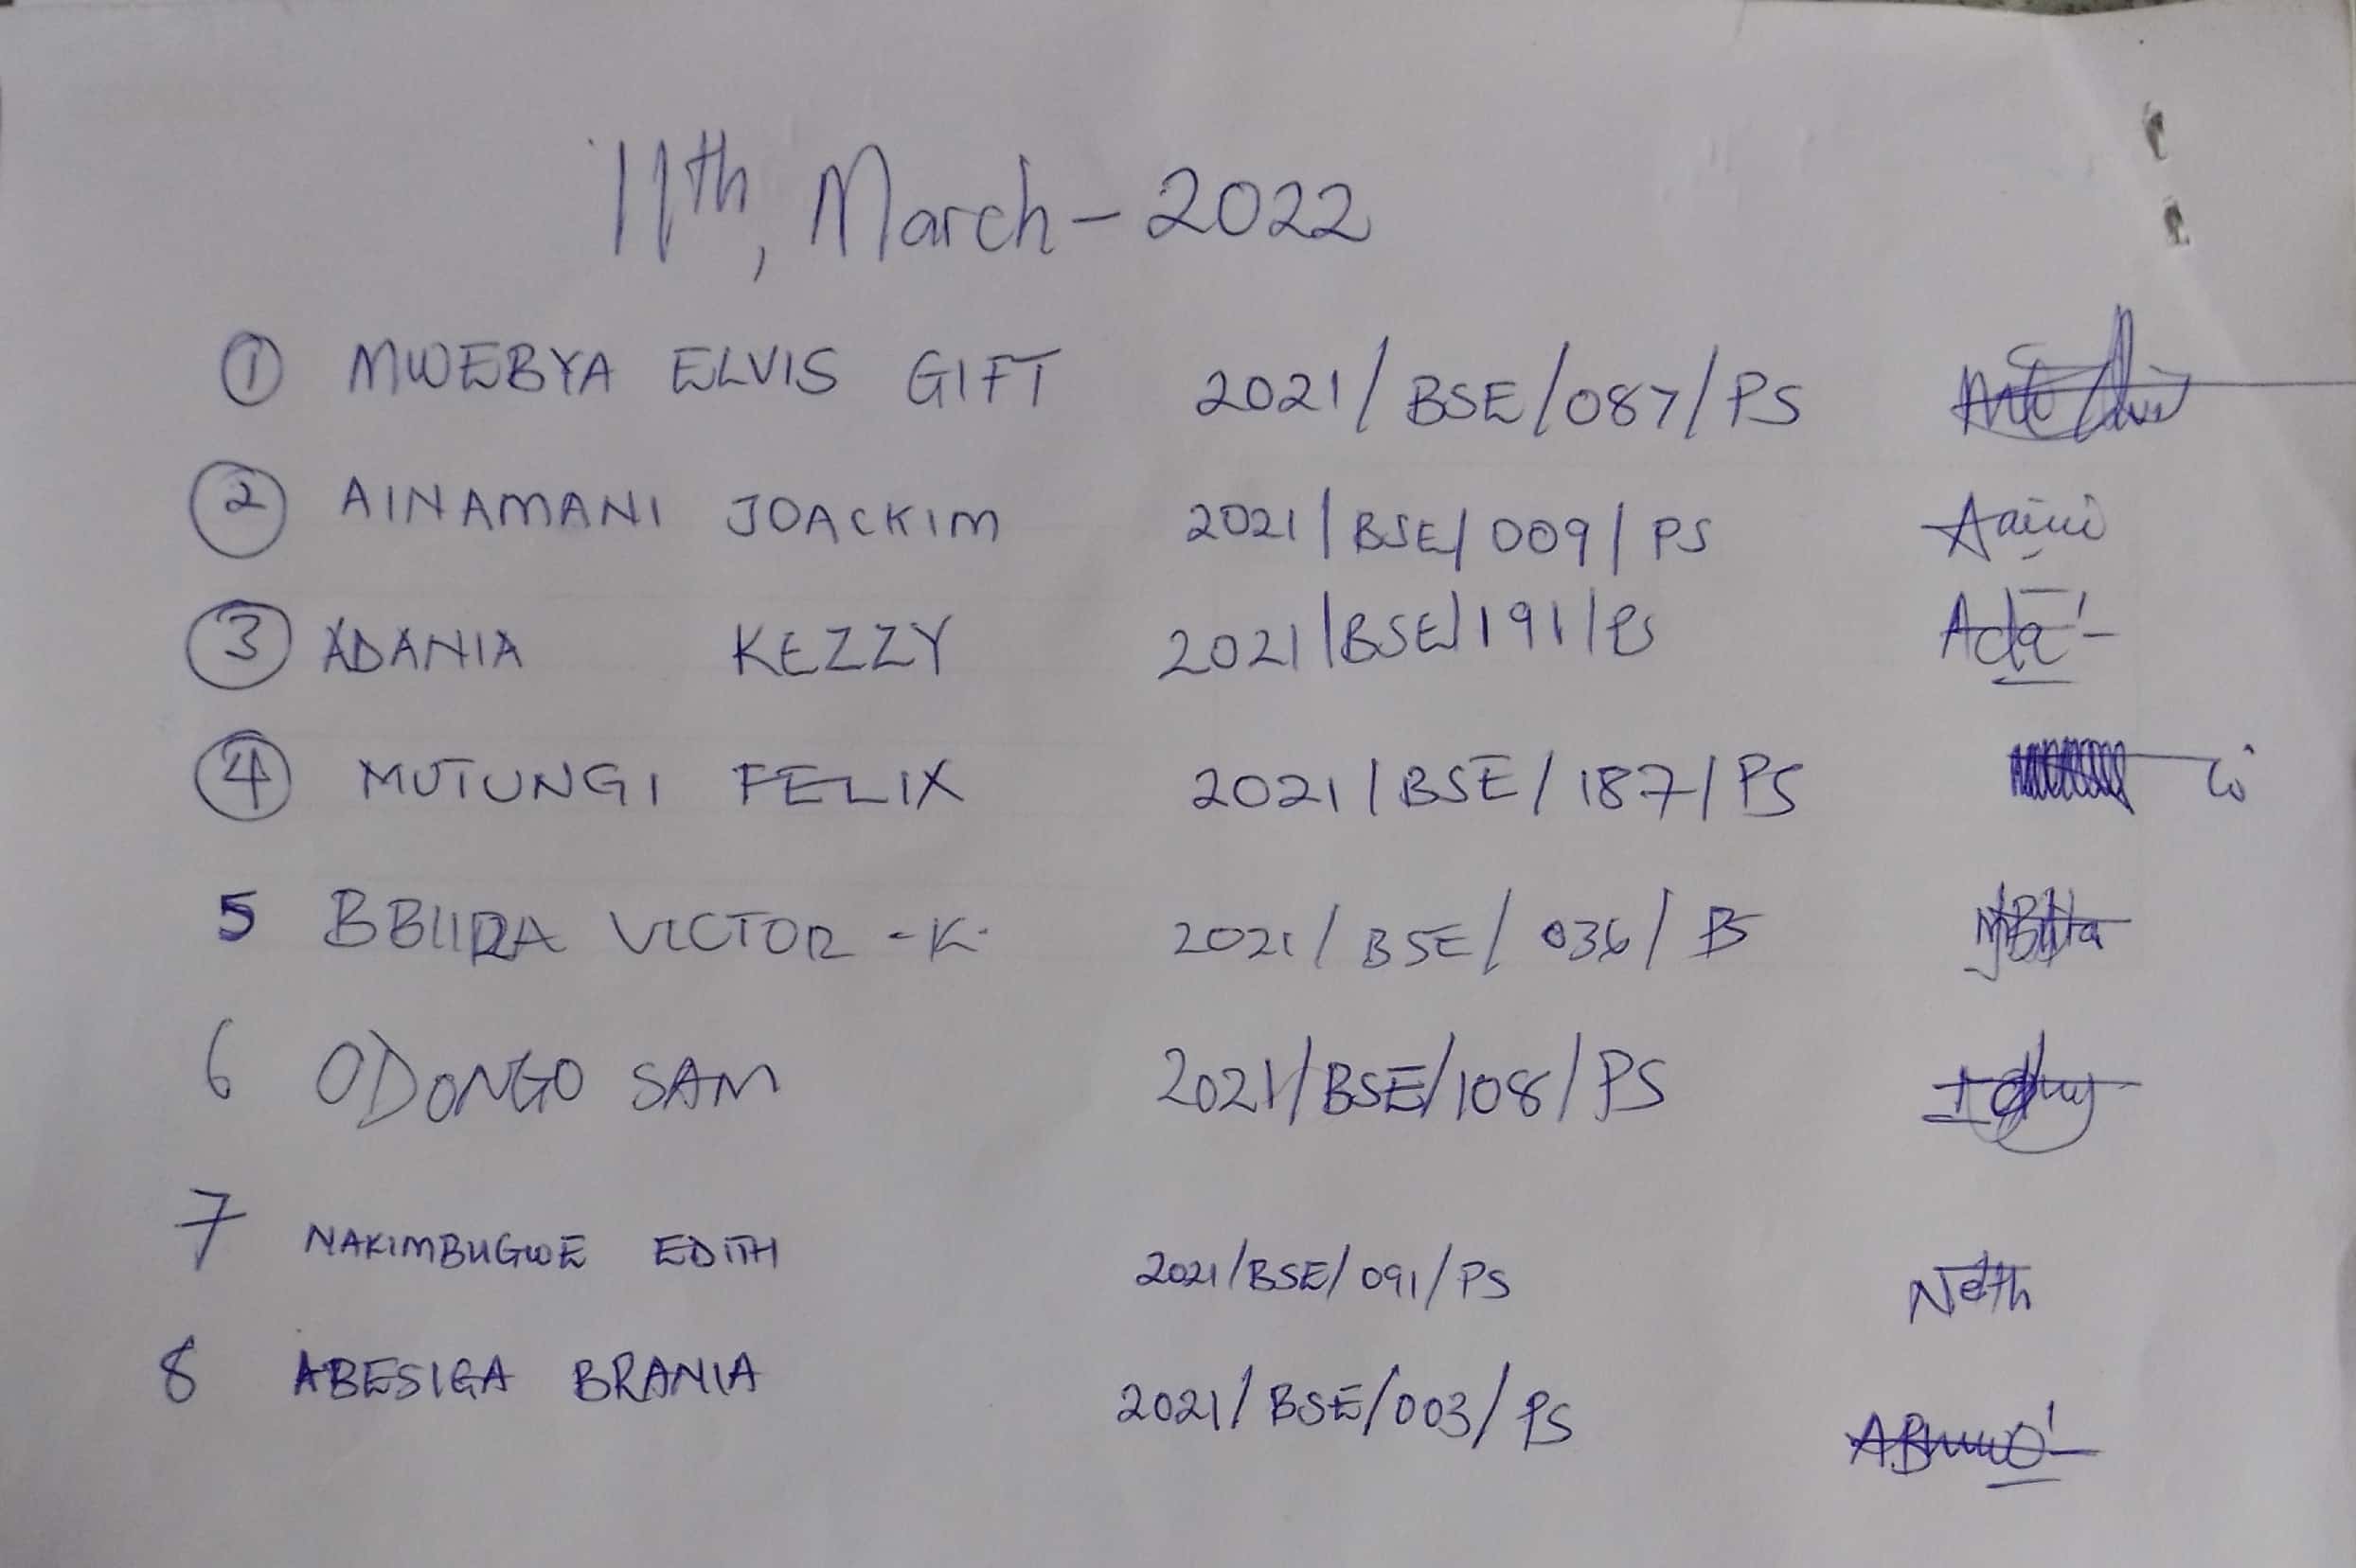 11th, March - 2022
① MWEBYA ELVIS GIFT 2021/BSE/087/PS
② AINAMANI JOACKIM 2021/BSE/009/PS
③ ADANIA KEZZY 2021/BSE/191/PS Ada
④ MUTUNGI FELIX 2021/BSE/187/PS
5 VICTOR -K. 2021/BSE/036/PS
6 ODONGO SAM 2021/BSE/108/PS
7 NAKIMBUGWE EDITH 2021/BSE/091/PS
8 ABESIGA BRANIA 2021/BSE/003/PS